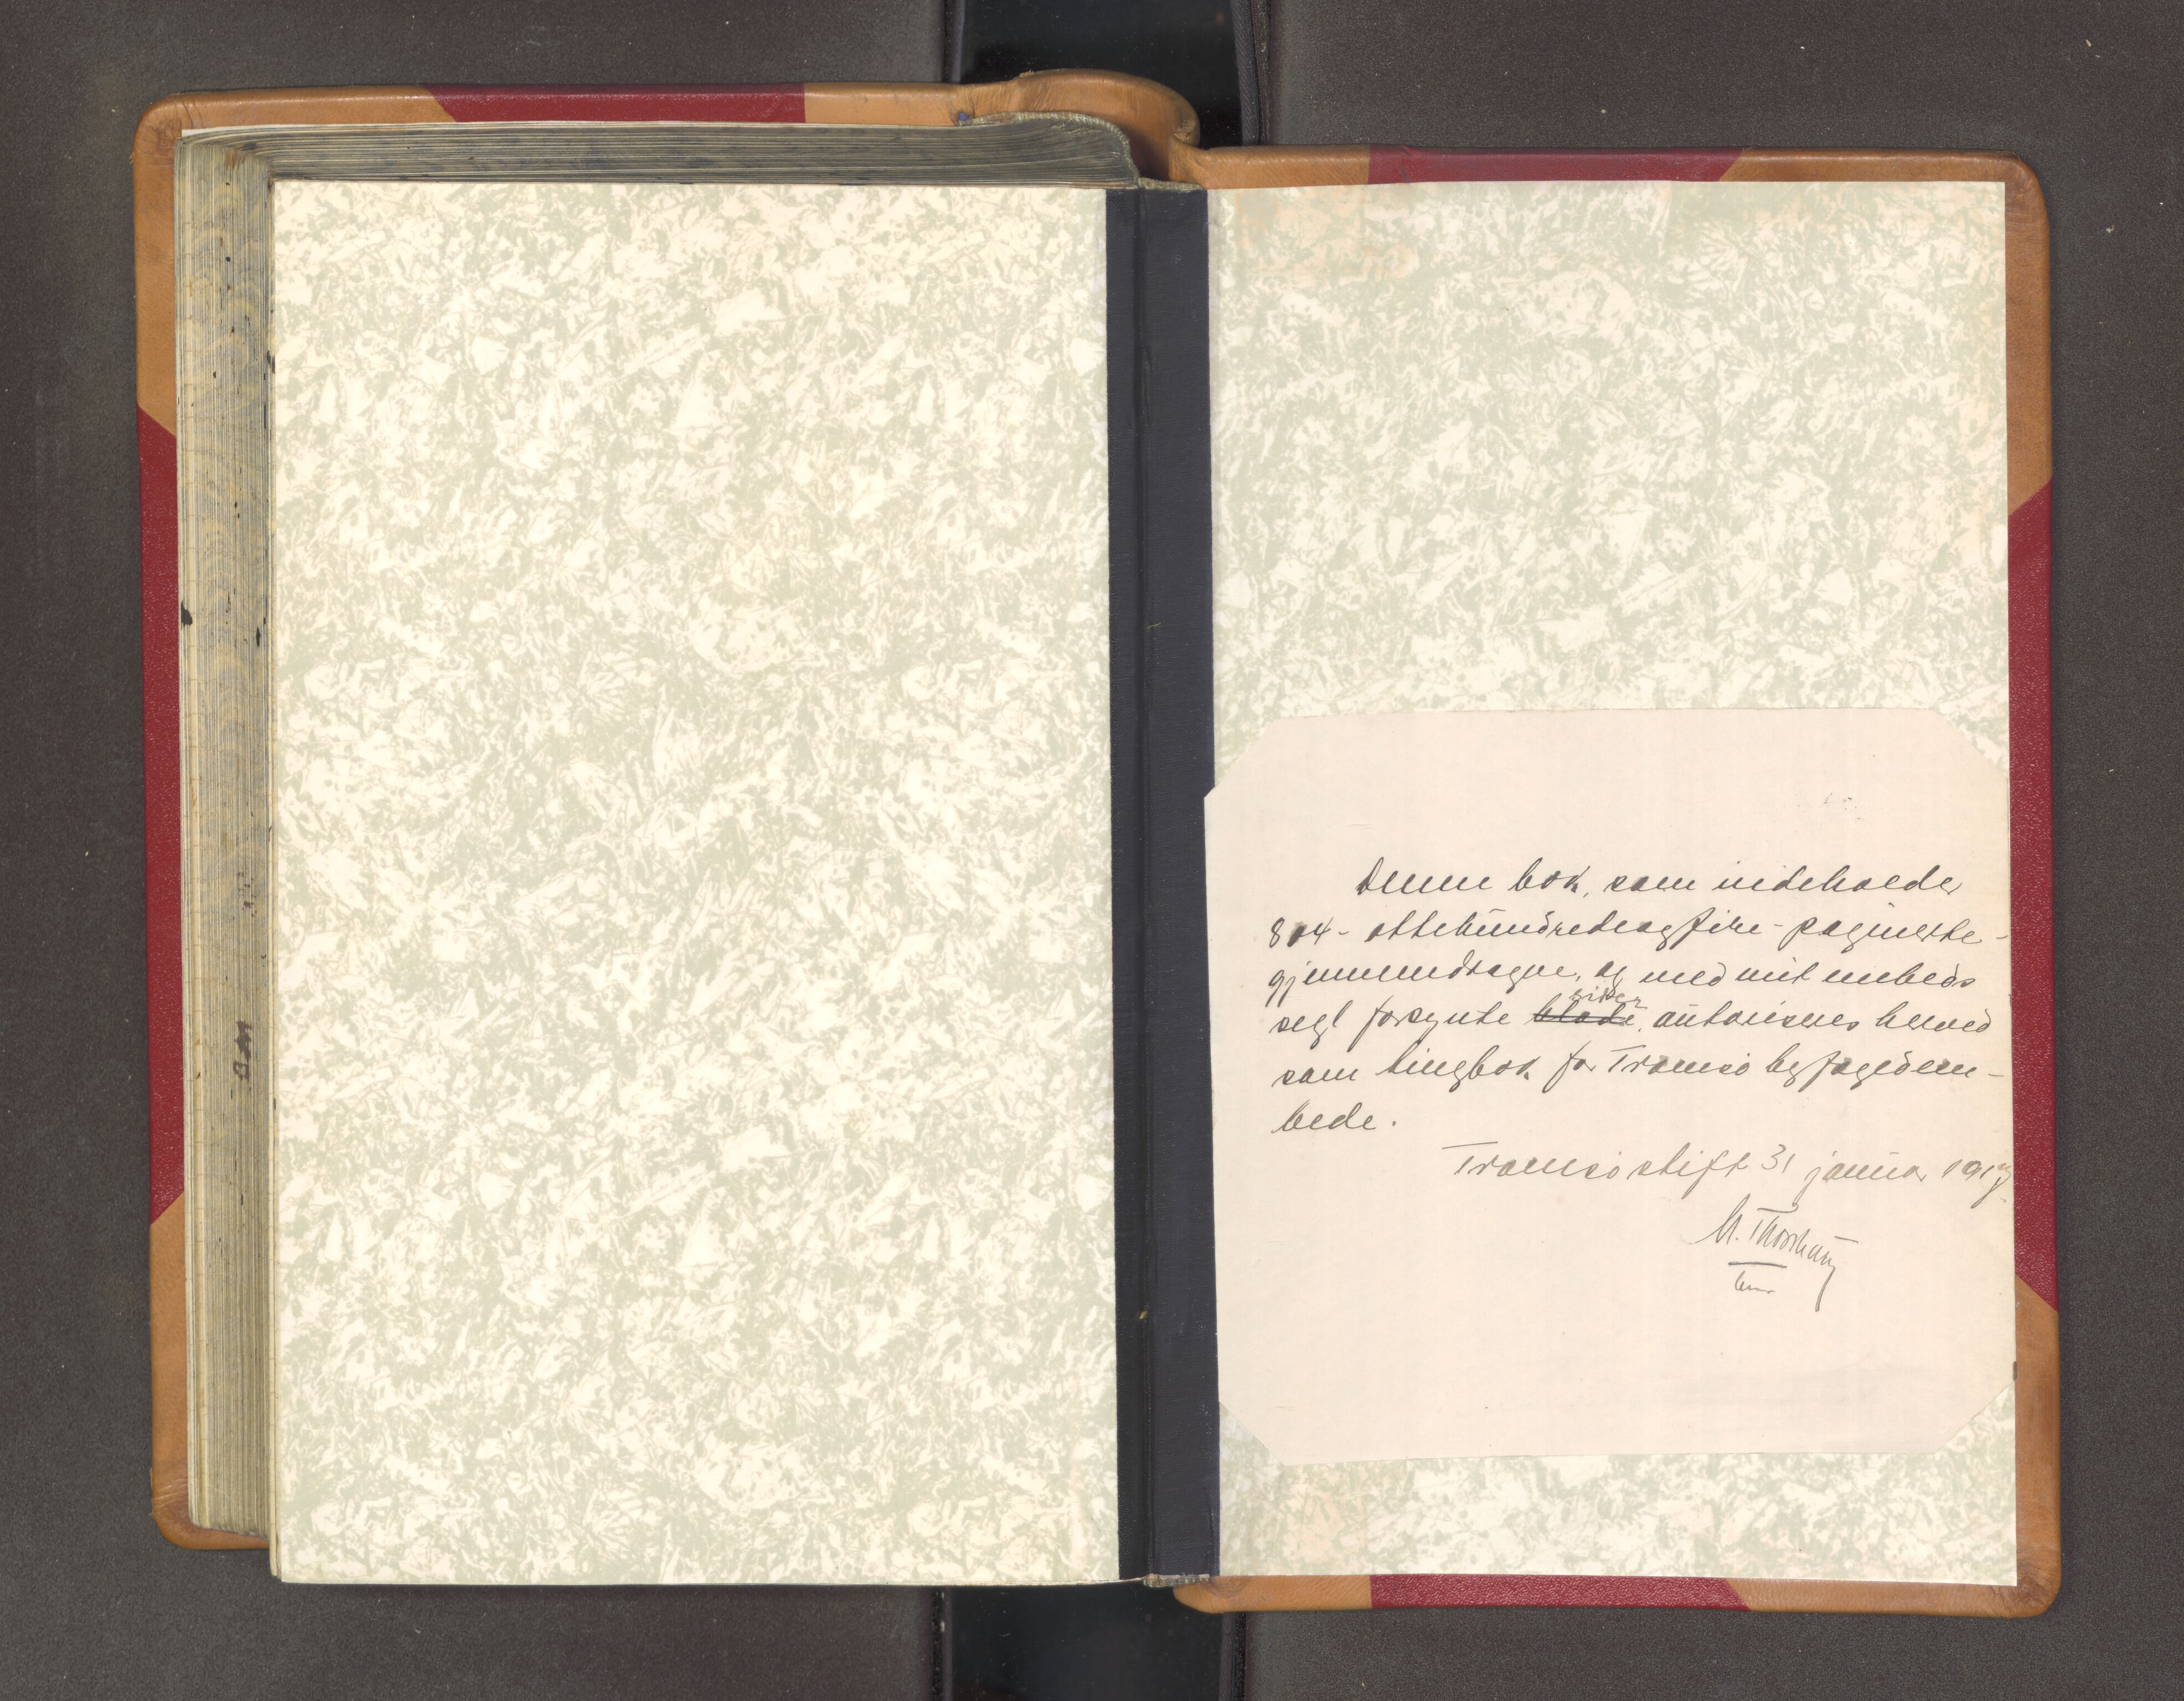 Denne bok, som indeholder
804 - ottehundredeogfire - paginerte -
gjennemdragne, og med mit embeds
segl forsynte ~~blade~~ sider, autoriseres herved
som tingbok for Tromsø byfogedem-
bede.
Tromsø stift 31 januar 1917